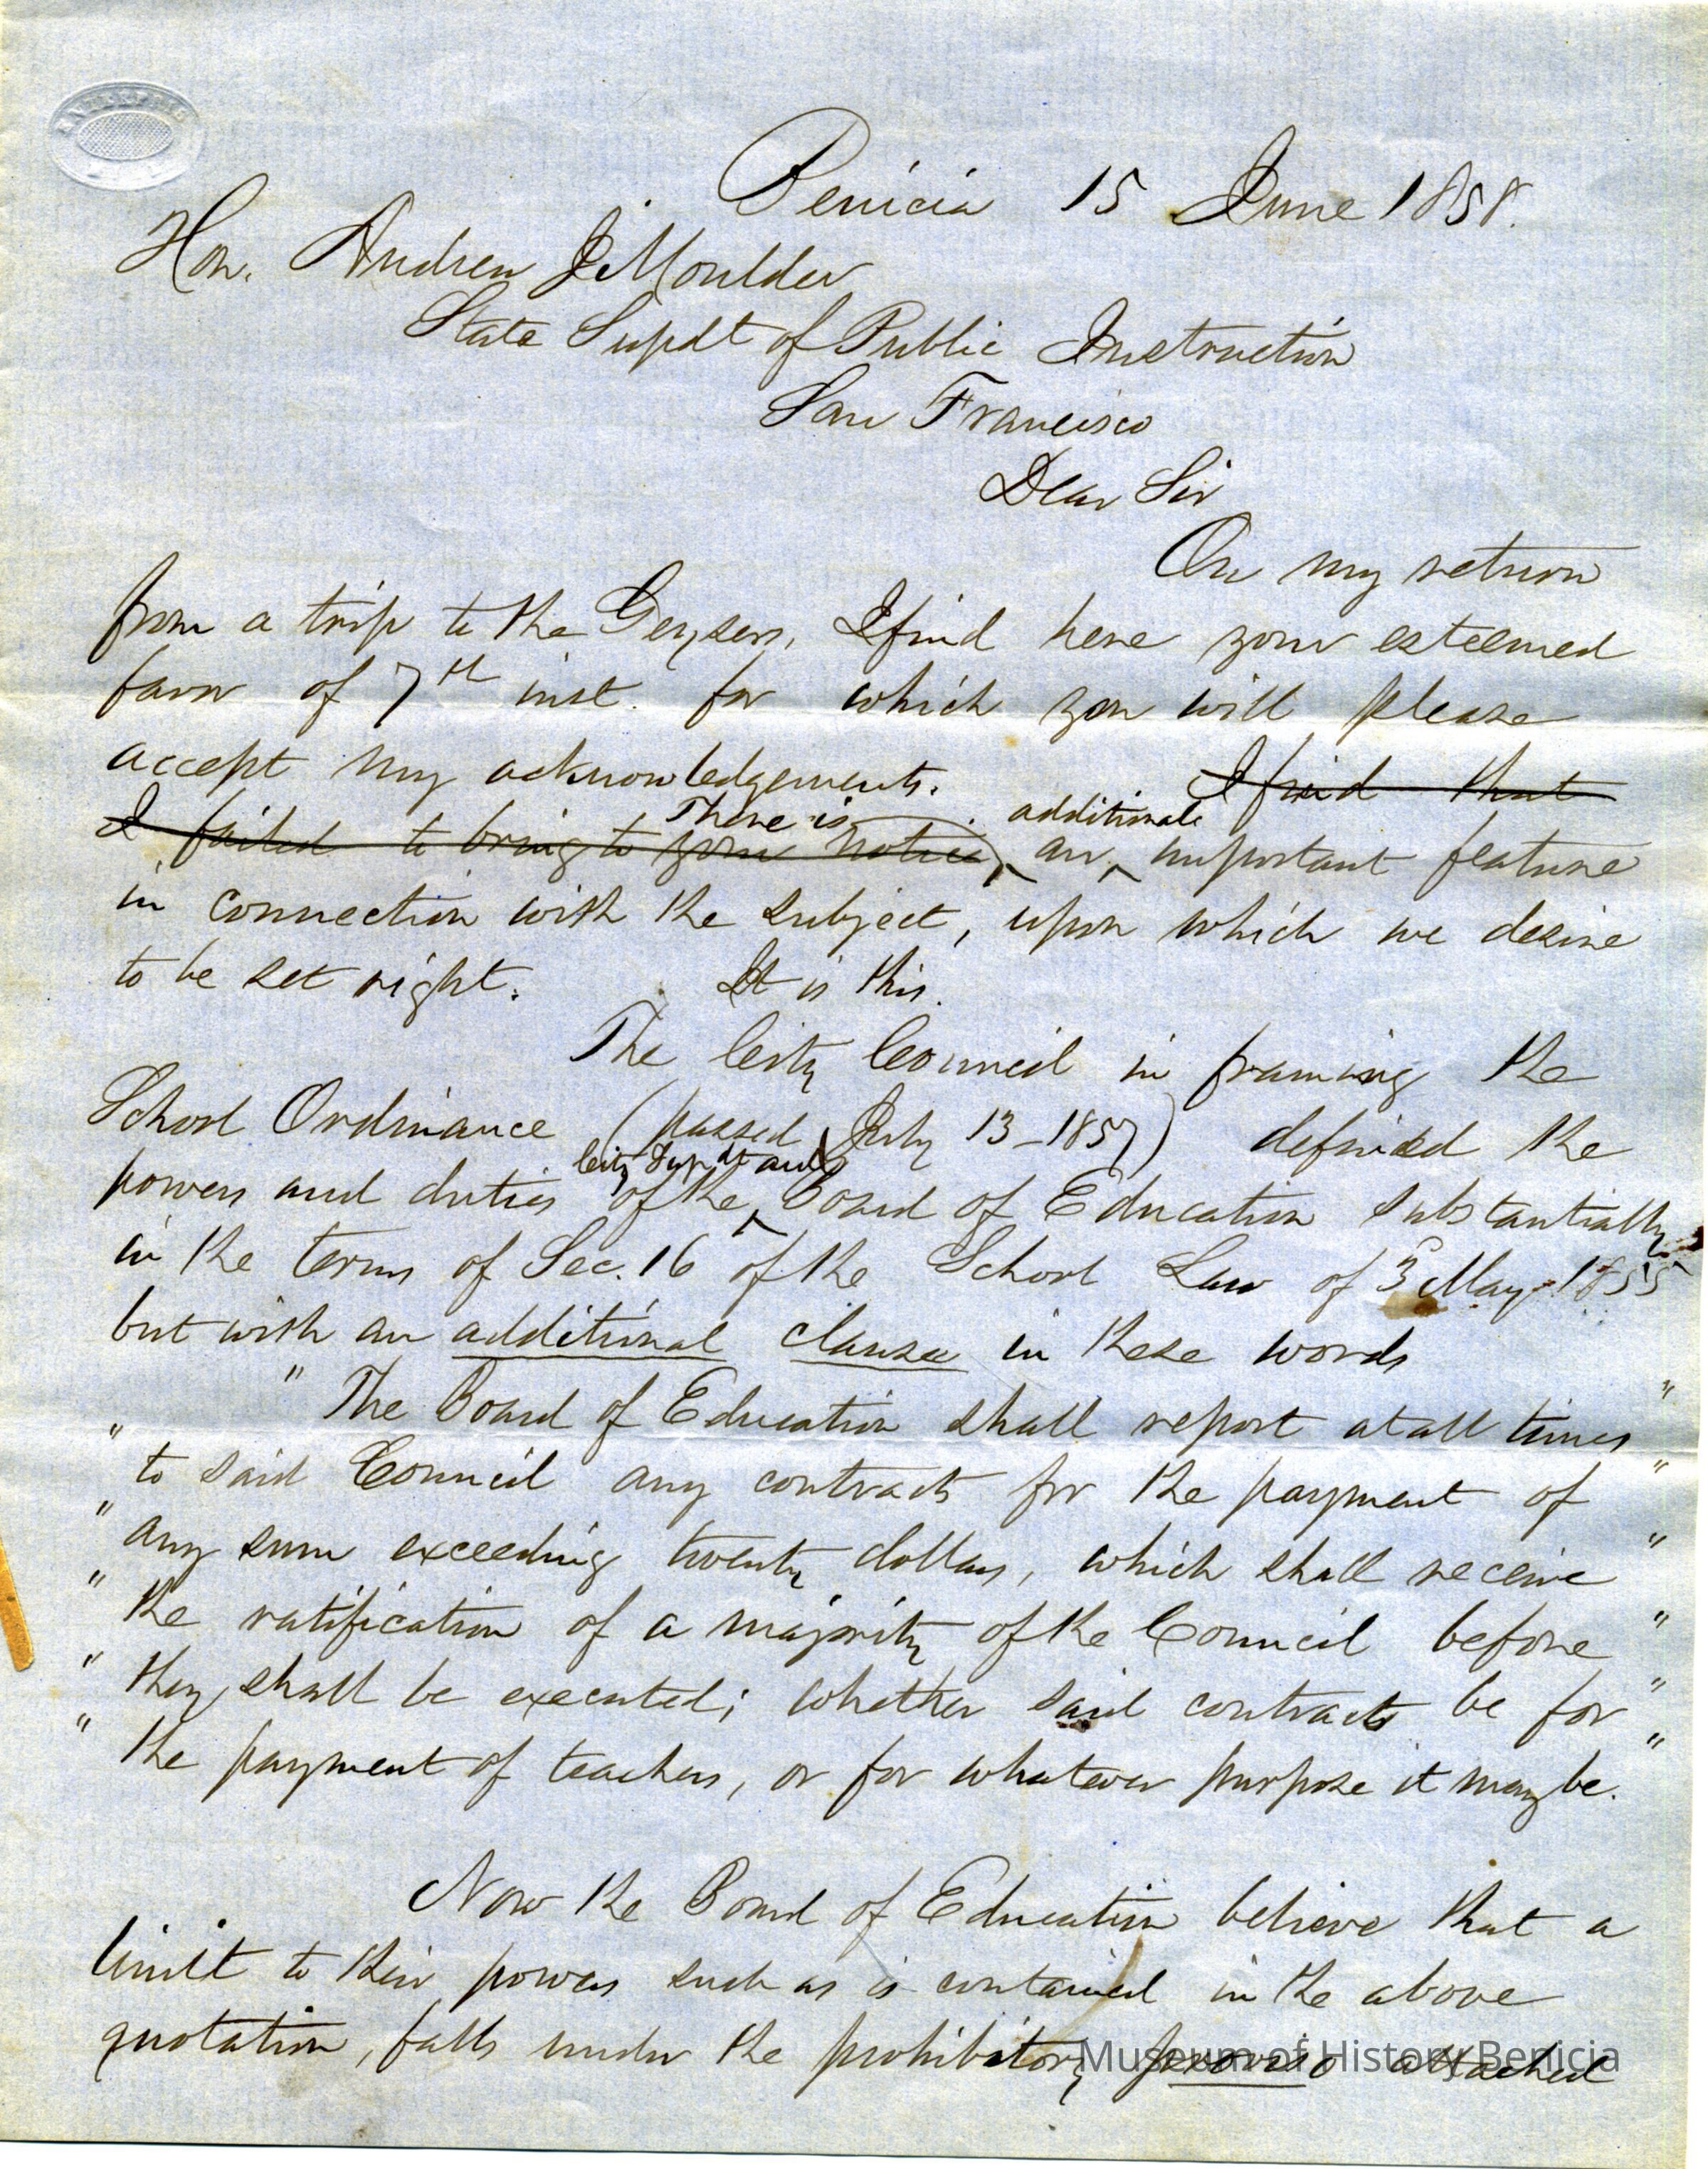 Benicia 15 June 1858.
Hon. Andrew J. Moulder
State Supdt of Public Instruction
San Francisco
Dear Sir
On my return
from a trip to the Geysers, I find here your esteemed
favor of 7th inst. for which you will please
accept my acknowledgements. I find that
I failed to bring to your notice There is an additional important feature
in connection with the subject, upon which we desire
to be set right. It is this.
The City Council in framing the
School Ordinance (passed July 13-1857) defined the
powers and duties of the City Supdt and Board of Education substantially
in the terms of Sec. 16 of the School Law of 3 May 1855
but with an additional clause in these words
" The Board of Education shall report at all times "
" to said Council any contracts for the payment of "
" any sum exceeding twenty dollars, which shall receive "
" the ratification of a majority of the Council before "
" they shall be executed; whether said contracts be for "
" the payment of teachers, or for whatever purpose it may be. "
Now the Board of Education believe that a
limit to their powers such as is contained in the above
quotation, falls under the prohibitory proviso attached
Museum of History Benicia